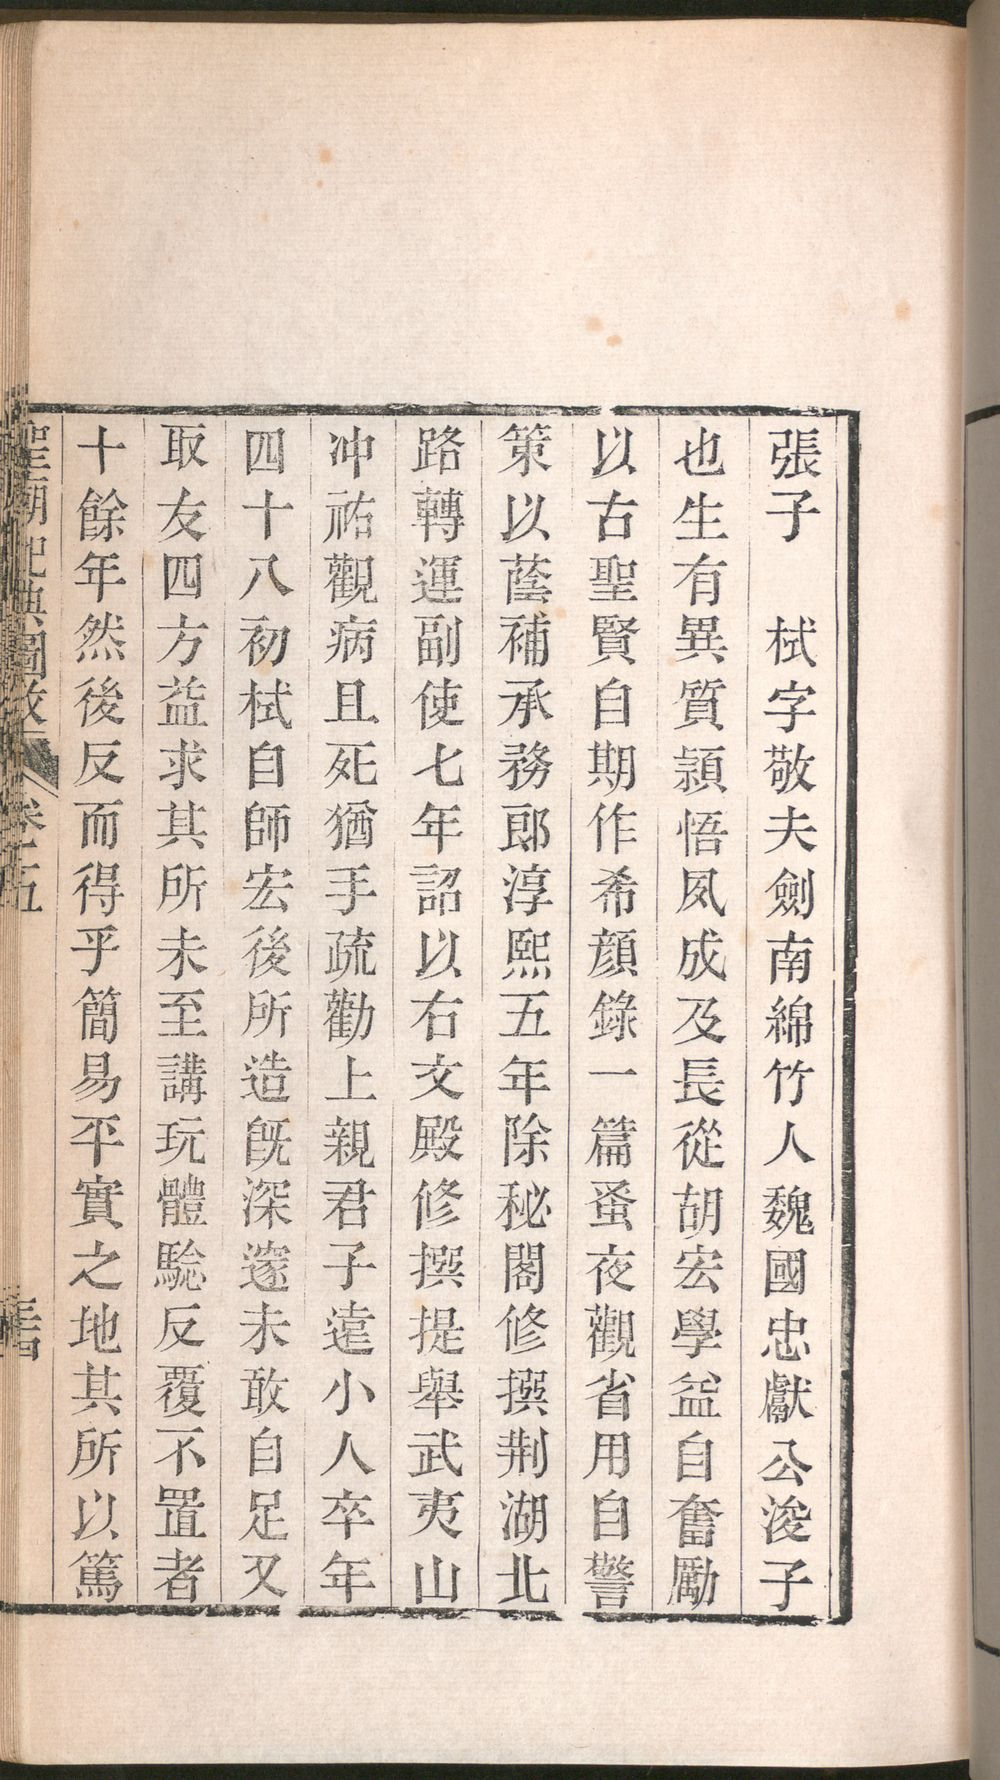 張子　栻字敬夫劍南綿竹人魏國忠獻公浚子
也生有異質頴悟夙成及長從胡宏學益自奮勵
以古聖賢自期作希顔錄一篇蚤夜觀省用自警
策以蔭補承務郎淳熙五年除秘閣修撰荆湖北
路轉運副使七年詔以右文殿修撰提舉武夷山
冲祐觀病且死猶手疏勸上親君子遠小人卒年
四十八初栻自師宏後所造旣深邃未敢自足又
取友四方益求其所未至講玩體驗反覆不置者
十餘年然後反而得乎簡易平實之地其所以篤
聖廟祀典圖攷 卷五